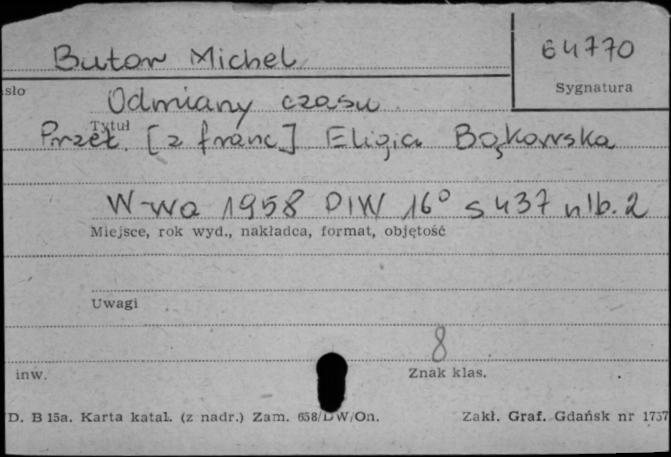 Butor Michel
64770
Sygnatura
sło
Odmiany czasu
Tytuł
Przeł. [z franc] Eligia Bąkowska
W-wa 1958 PIW 16° s 437 nlb. 2
Miejsce, rok wyd., nakładca, format, objętość
Uwagi
8
inw.
Znak klas.
D. B 15a. Karta katal. (z nadr.) Zam. 658/DW/On.
Zakł. Graf. Gdańsk nr 1737